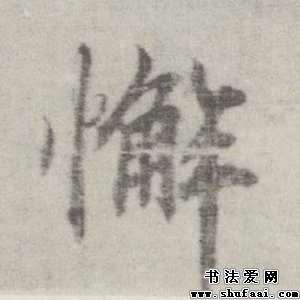 懈
书法爱网
www.shufaai.com